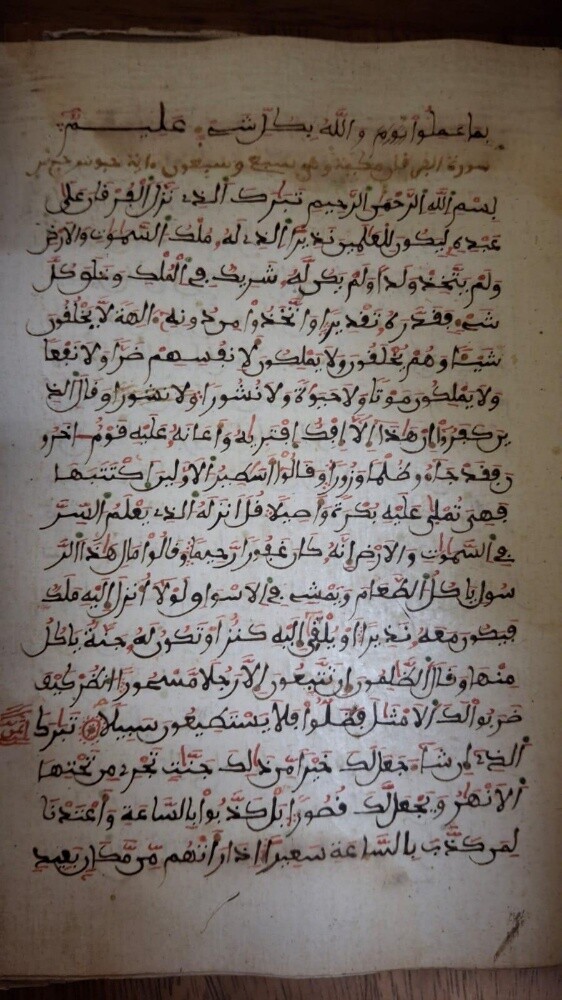 بما عملوا يوم والله بكل شيء عليم
سورة الفرقان مكية وهي سبع وسبعون ءاية
بسم الله الرحمن الرحيم تبرك الذي نزل الفرقان على
عبده ليكون للعلمين نذيرا الذي له ملك السموت والارض
ولم يتخذ ولدا ولم يكن له شريك في الملك وخلق كل
شيء فقدره تقديرا واتخذوا من دونه ءالهة لا يخلقون
شيئا وهم يخلقون ولا يملكون لانفسهم ضرا ولا نفعا
ولا يملكون موتا ولا حيوة ولا نشورا ولا نشورا وقال الذ
ين كفروا ان هذا الا افك افتريه واعانه عليه قوم اخرو
ن فقد جاءو ظلما وزورا وقالوا اسطير الاولين اكتتبها
فهي تملى عليه بكرة واصيلا قل انزله الذي يعلم السر
في السموت والارض انه كان غفورا رحيما وقالوا مال هذا الر
سول ياكل الطعام ويمشي في الاسواق لولا انزل اليه ملك
فيكون معه نذيرا او يلقى اليه كنز او تكون له جنة ياكل
منها وقال الظلمون ان تتبعون الا رجلا مسحورا انظر كيف
ضربوا لك الامثل فضلوا فلا يستطيعون سبيلا تبرك
الذي ان شاء جعل لك خيرا من ذلك جنت تجري من تحتها
الانهر ويجعل لك قصورا بل كذبوا بالساعة واعتدنا
لمن كذب بالساعة سعيرا اذا راتهم من مكان بعيد